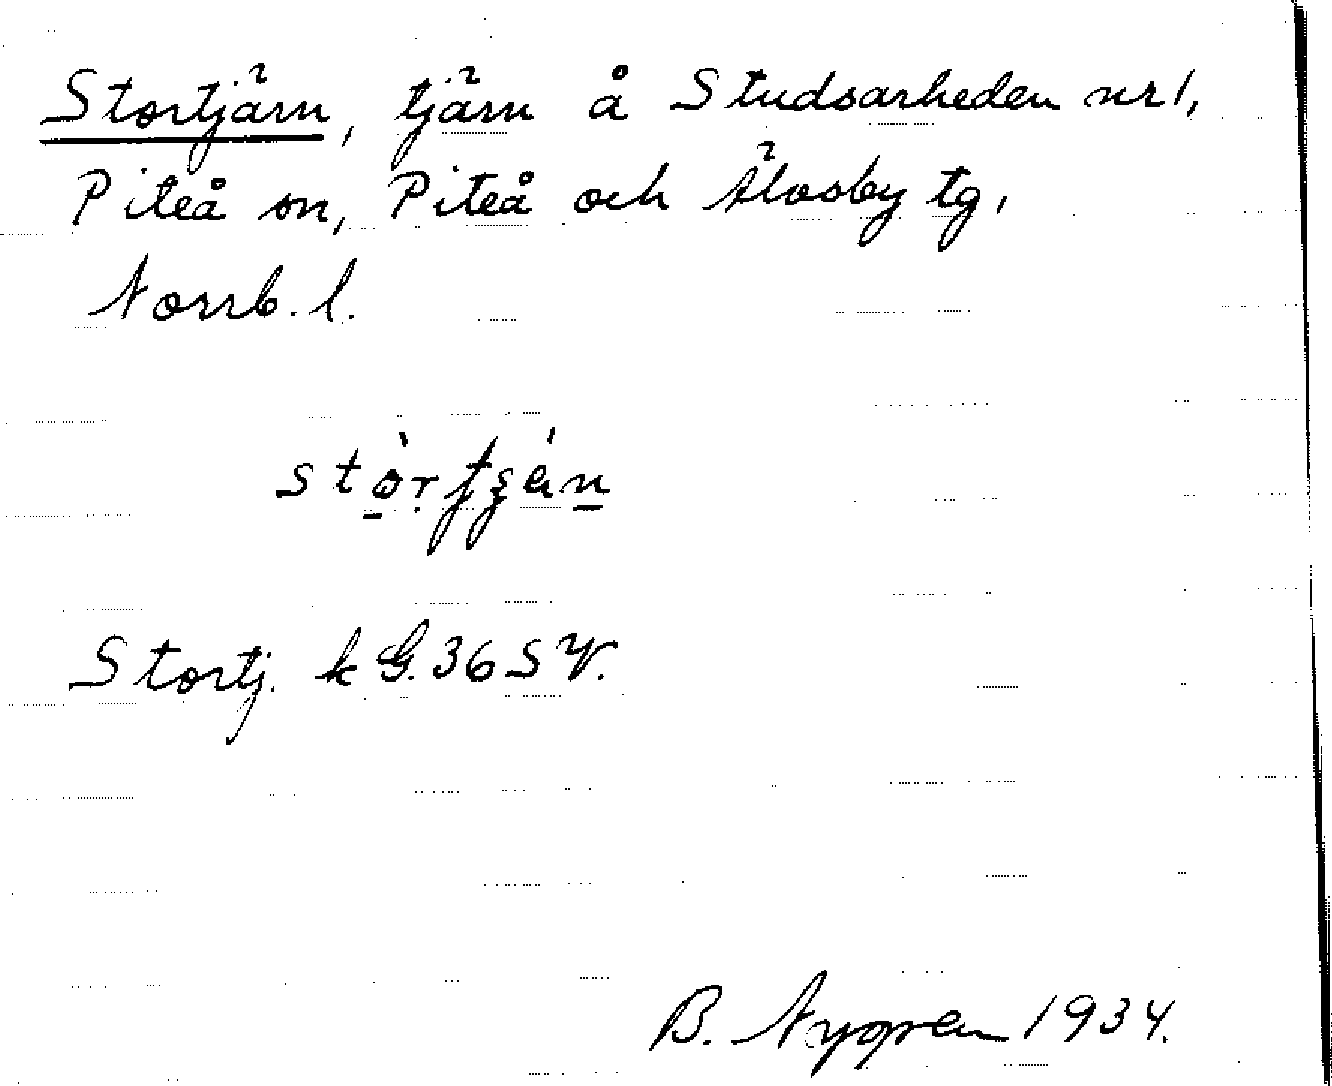 Stortjärn, tjärn å Studsarheden nr 1,
Piteå sn, Piteå och Älvsby tg,
Norrb. l.
Stortj. k G. 36 SV.
B. Nygren 1934.